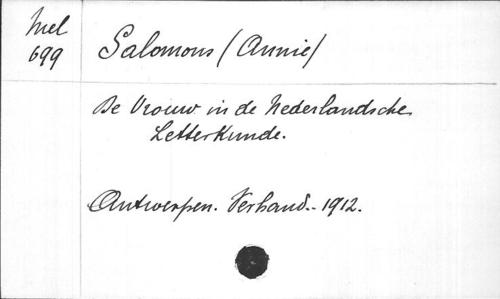 Mel
699
Salomons (Annie)
De Vrouw in de Nederlandsche
Letterkunde.
Antwerpen. Verhand.- 1912.